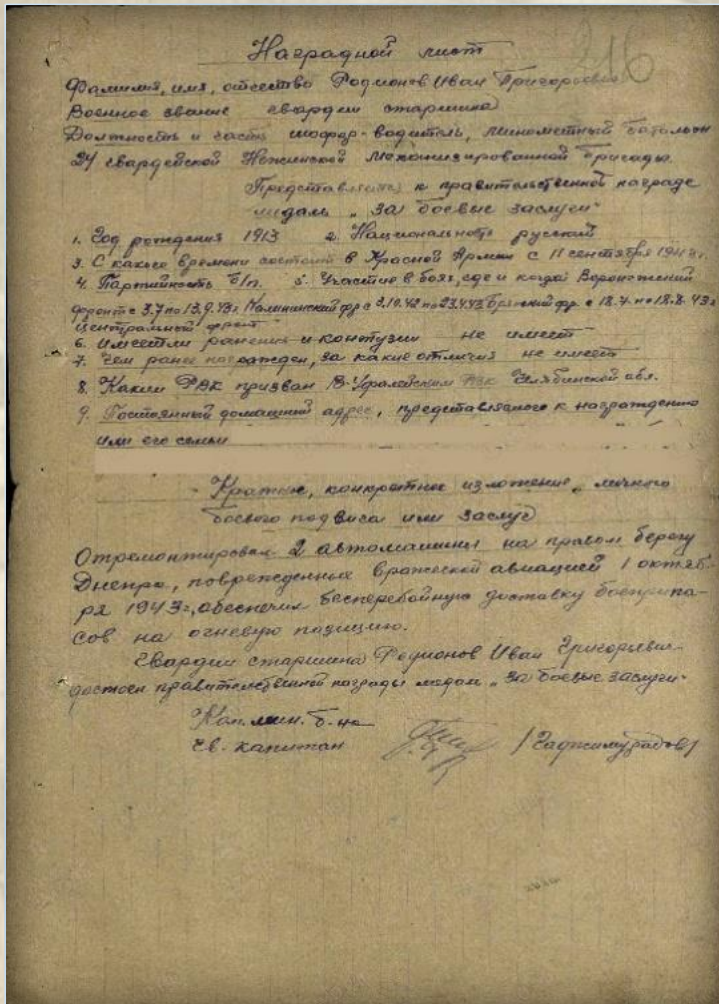 216
Наградной лист
Фамилия, имя, отчество Родионов Иван Григорьевич
Военное звание гвардии старшина
Должность и часть шофер-водитель, минометный батальон
24 гвардейской Нежинской механизированной бригады.
Представляется к правительственной награде
медаль „За боевые заслуги"
1. Год рождения 1913 2. Национальность русский
3. С какого времени состоит в Красной Армии с 11 сентября
4. Партийность б/п. 5. Участие в боях, где и когда Воронежский
фронт с 3.7 по 13.9.43г. Калининский фр с 3.10.42 по 23.4.43 Брянский фр. с 18.7. по 18.8.43г
Центральный фронт
6. Имеет ли ранения и контузии не имеет
7. Чем ранее награжден, за какие отличия не имеет
8. Каким РВК призван В-Уфалейским РВК Челябинской обл.
9. Постоянный домашний адрес, представляемого к награждению
или его семьи
Краткое, конкретное изложение, личного
боевого подвига или заслуг
Отремонтировал 2 автомашины на правом берегу
Днепра, поврежденные вражеской авиацией 1 октяб-
ря 1943г, обеспечил бесперебойную доставку боеприпа-
сов на огневую позицию.
Гвардии старшина Родионов Иван Григорьевич
достоин правительственной награды медаль „За боевые заслуги"
Ком. мин. б-на
гв. капитан /Гаджимурадов/